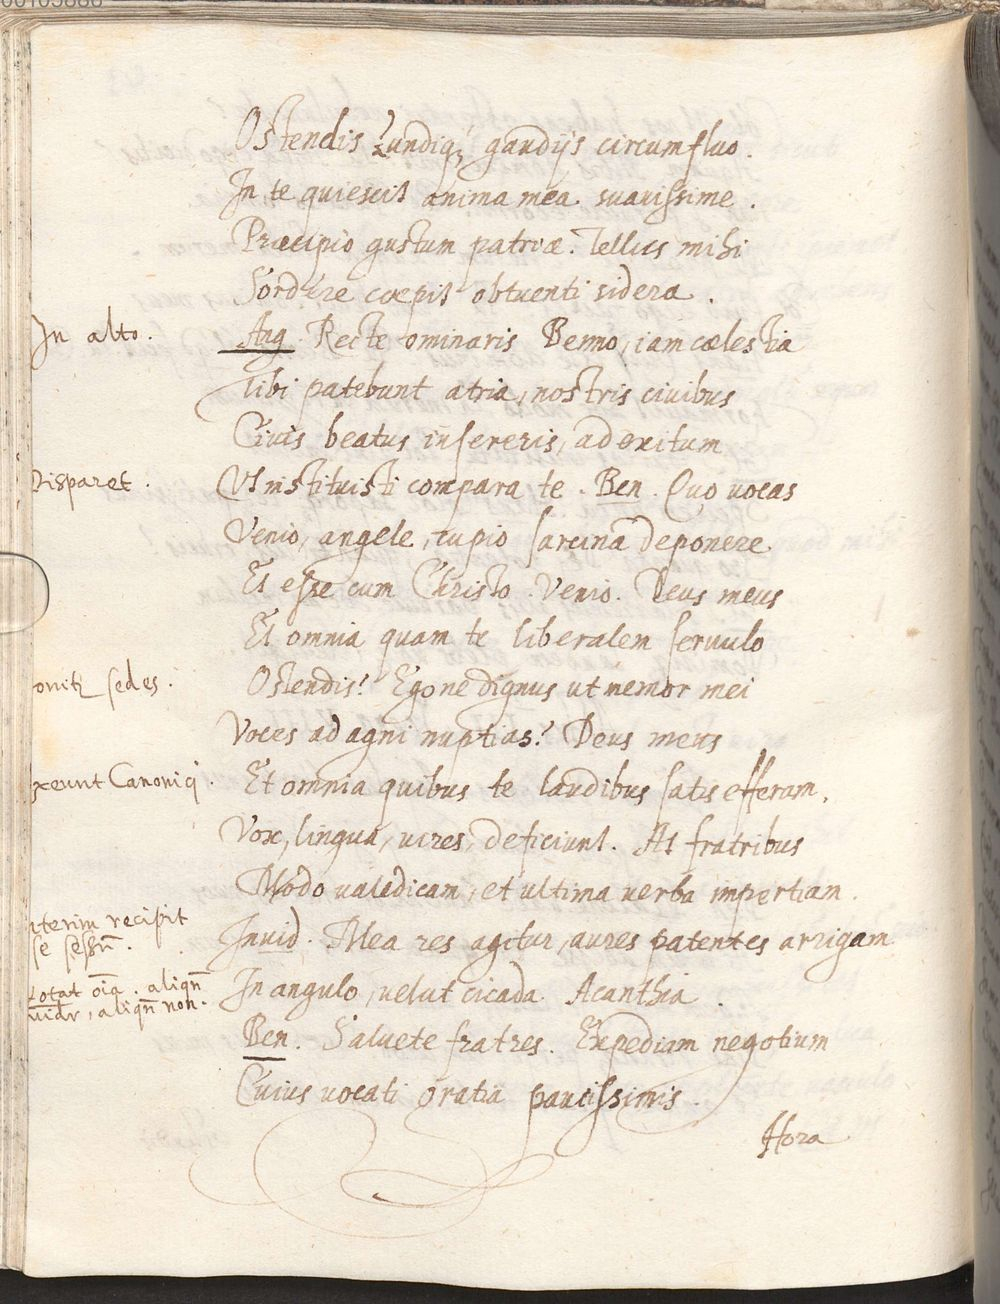 Ostendis? undiq; gaudijs circumfluo.
In te quiescit anima mea suauissime.
Præcipio gustum patriæ. Tellus mihi
Sordere coepit obtuenti sidera.
In alto.
Ang. Recte ominaris Benno, iam cælestia
Tibi patebunt atria, nostris ciuibus
Ciuis beatus insereris, ad exitum
Disparet.
Ut instituisti compara te. Ben. Quo uocas
Venio, angele, cupio sarcinā deponere
Et esse cum Christo. Venio. Deus meus
Et omnia quam te liberalem seruulo
onitr sedes.
Ostendis? Egone dignus ut memor mei
Voces ad agni nuptias? Deus meus
xeunt Canonici.
Et omnia quibus te laudibus satis efferam,
Vox, lingua, uires, deficiunt. At fratribus
Modo ualedicam, et ultima uerba impertiam.
nterim recipit
se sessū.
Inuid. Mea res agitur, aures patentes arrigam
otat oīa. aliqn̄
uidr, aliqn̄ non.
In angulo, uelut cicada Acanthia.
Ben. Saluete fratres. Expediam negotium
Cuius uocati gratiā paucissimis.
Hora